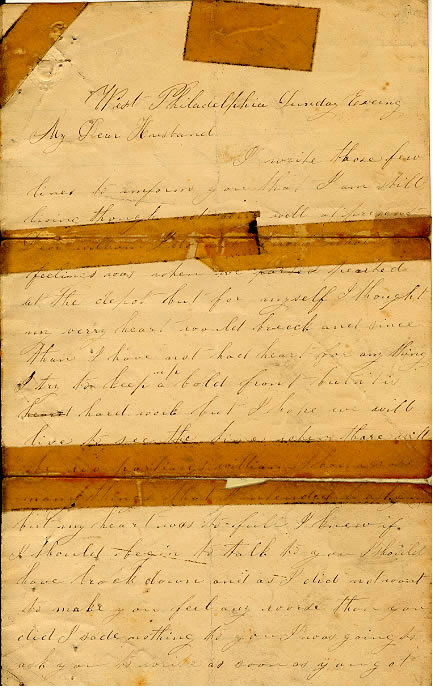 West Philadelphia Sunday Evening
My Dear Husband
I write these few
lines to imform you that I am still
living though not well at present
feelings was when we parted
at the depot but for myself I thought
my verry heart would breeck and since
than I have not had heart for any thing
I try to keep up a bold front but it is
hard work but I hope we will
live to see the time when there will
be no parting
but my heart was so full I knew if
I should begin to talk to you I would
have brock down and as I did not want
to make you feel any worse than you
did I sade nothing to you I was going to
ask you to write as soon as you got